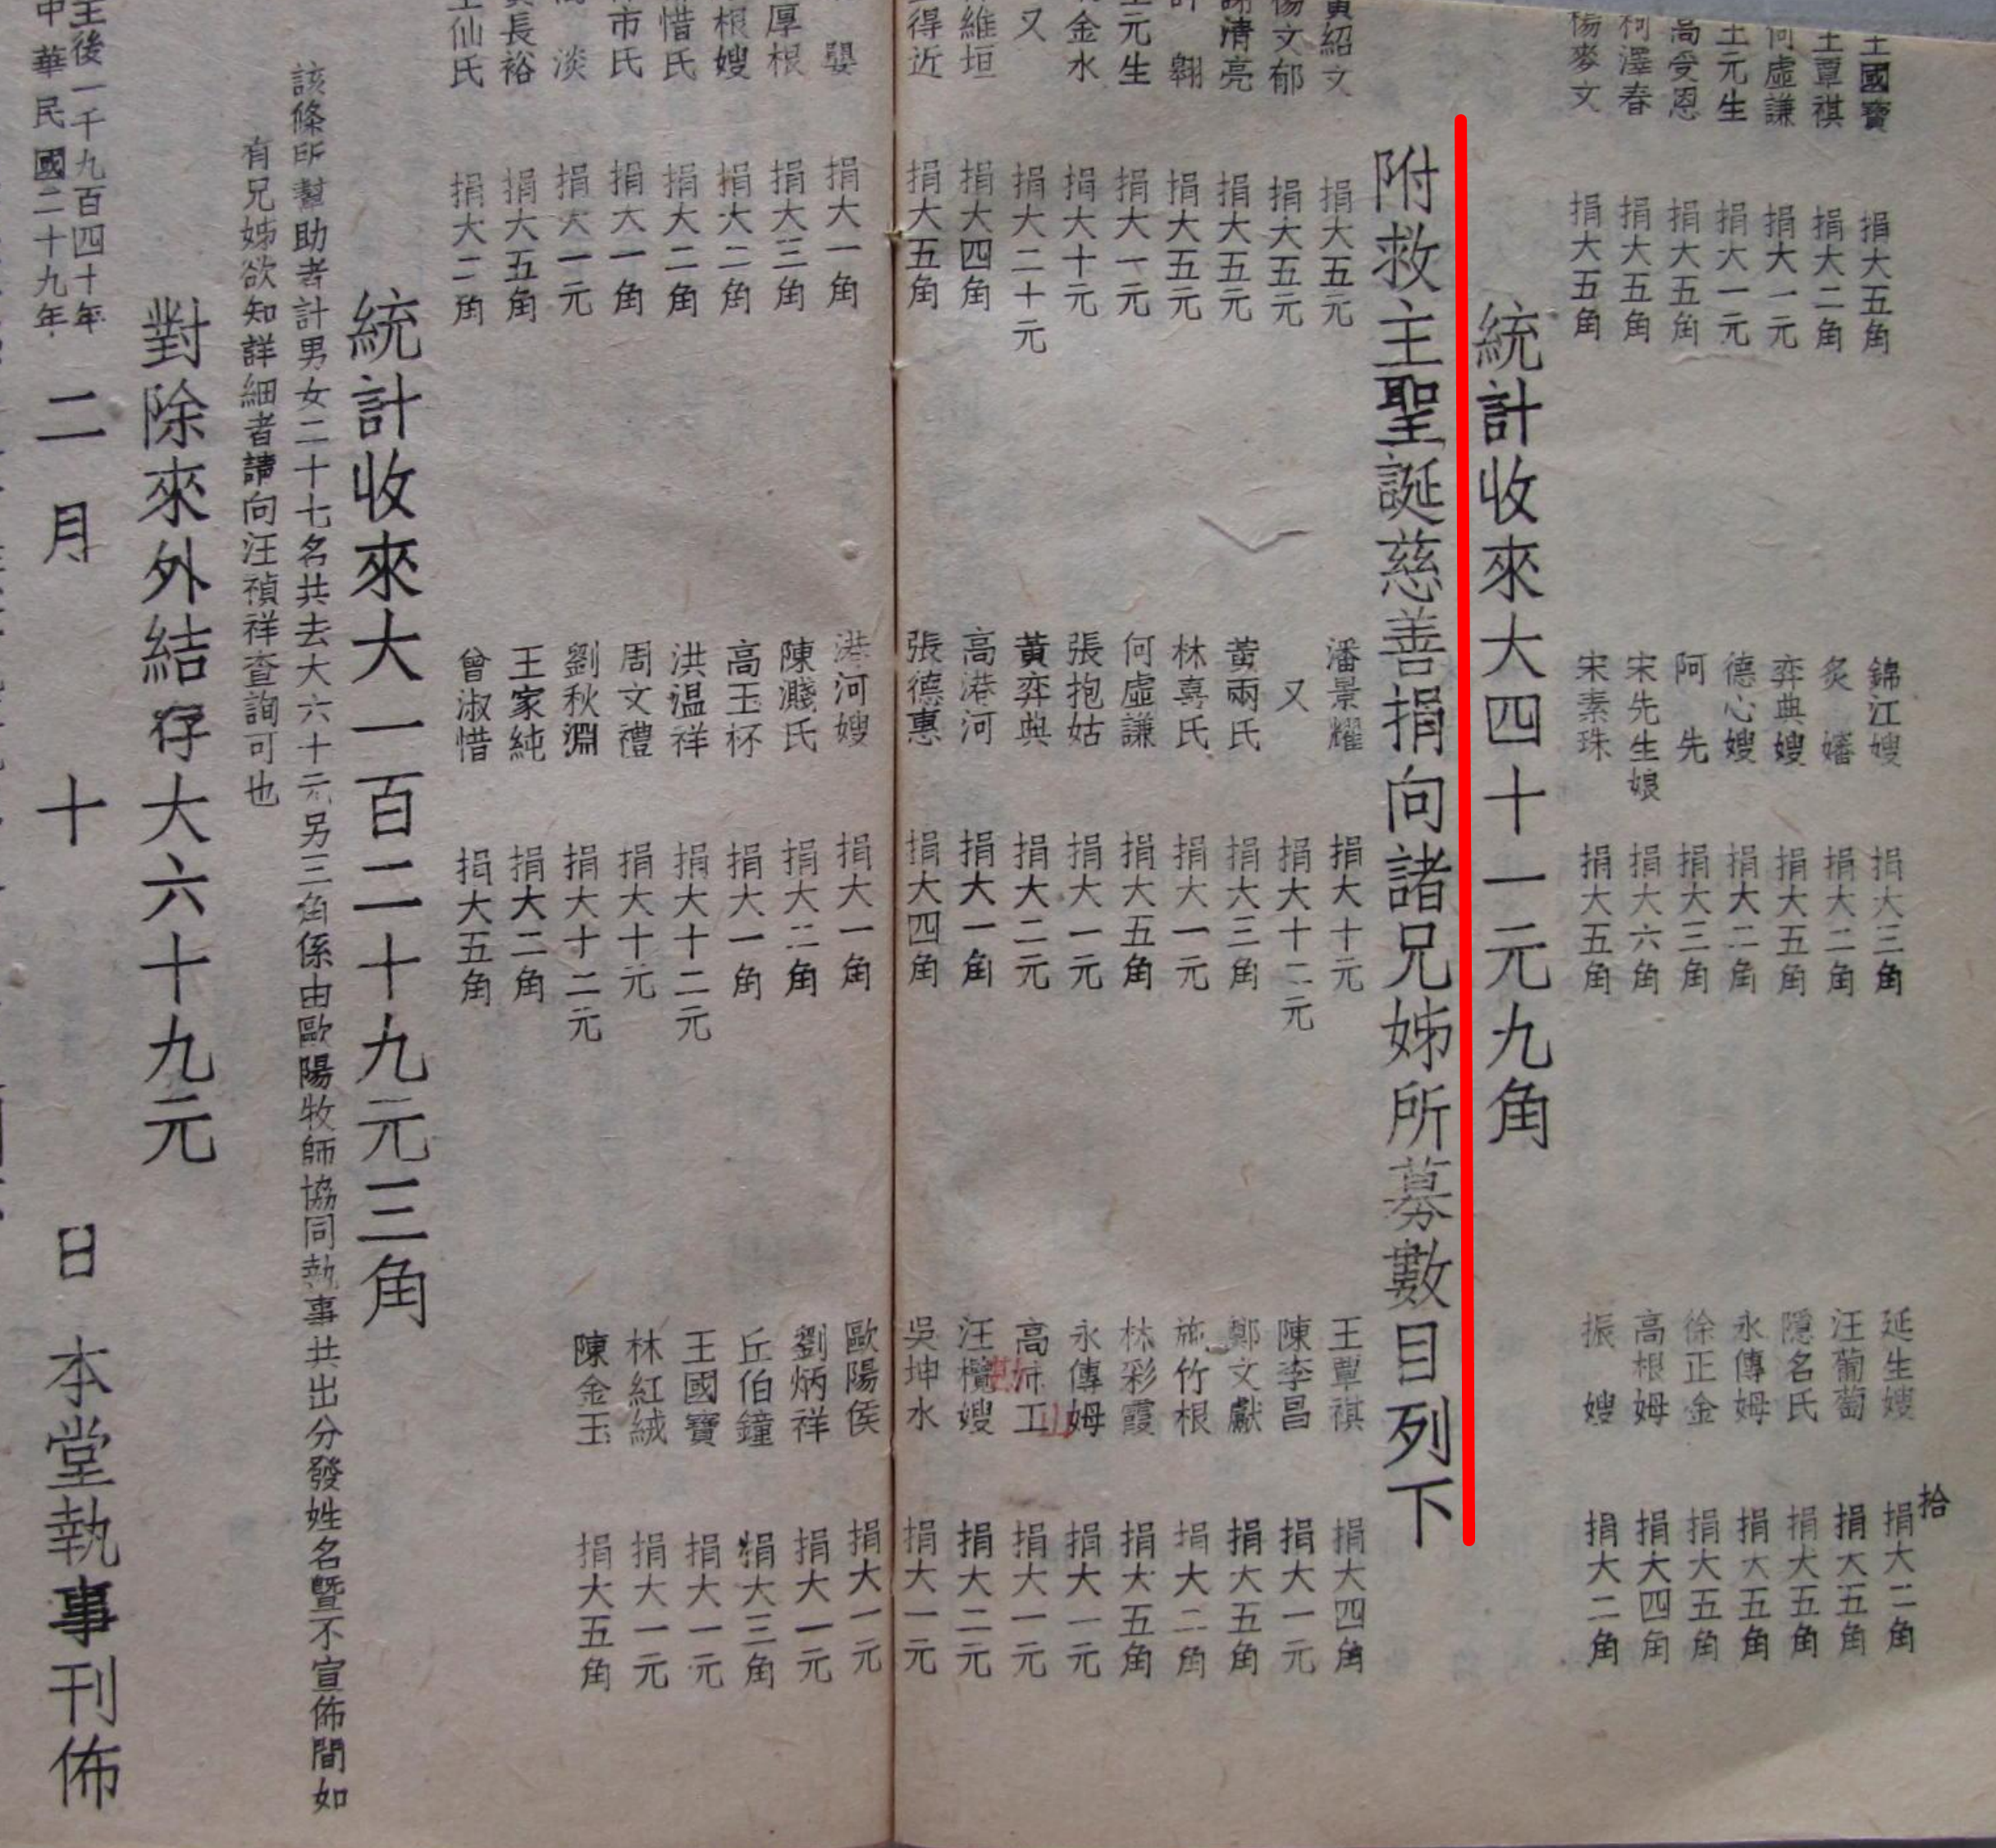 拾
王國寶 捐大五角 錦江嫂 捐大三角 延生嫂 捐大二角
王覃祺 捐大二角 炙嬸 捐大二角 汪葡萄 捐大五角
何虛謙 捐大一元 弈典嫂 捐大五角 隱名氏 捐大五角
王元生 捐大一元 德心嫂 捐大二角 永傳姆 捐大五角
高受恩 捐大五角 阿先 捐大三角 徐正金 捐大五角
柯澤春 捐大五角 宋先生娘 捐大六角 高根姆 捐大四角
楊麥文 捐大五角 宋素珠 捐大五角 振嫂 捐大二角
統計收來大四十一元九角
附救主聖誕慈善捐向諸兄姊所募數目列下
黃紹文 捐大五元 潘景耀 捐大十元 王覃祺 捐大四角
楊文郁 捐大五元 又 捐大十二元 陳李昌 捐大一元
謝清亮 捐大五元 黃兩氏 捐大三角 鄭文獻 捐大五角
許翱 捐大五元 林喜氏 捐大一元 施竹根 捐大二角
王元生 捐大一元 何虛謙 捐大五角 林彩霞 捐大五角
金水 捐大十元 張抱姑 捐大一元 永傳姆 捐大一元
又 捐大二十元 黃弈典 捐大二元 高沛工 捐大一元
維垣 捐大四角 高港河 捐大一角 汪欖嫂 捐大二元
得近 捐大五角 張德惠 捐大四角 吳坤水 捐大一元
嬰 捐大一角 港河嫂 捐大一角 歐陽侯 捐大一元
厚根 捐大三角 陳濺氏 捐大二角 劉炳祥 捐大一元
根嫂 捐大二角 高玉杯 捐大一角 丘伯鐘 捐大三角
惜氏 捐大二角 洪温祥 捐大十二元 王國寶 捐大一元
市氏 捐大一角 周文禮 捐大十元 林紅絨 捐大一元
淡 捐大一元 劉秋淵 捐大十二元 陳金玉 捐大五角
長裕 捐大五角 王家純 捐大二角
仙氏 捐大二角 曾淑惜 捐大五角
統計收來大一百二十九元三角
該條所幫助者計男女二十七名共去大六十元另三角係由歐陽牧師協同執事共出分發姓名暨不宣佈間如
有兄姊欲知詳細者請向汪禎祥查詢可也
對除來外結存大六十九元
主後一千九百四十年
中華民國二十九年 二月十日 本堂執事刊佈